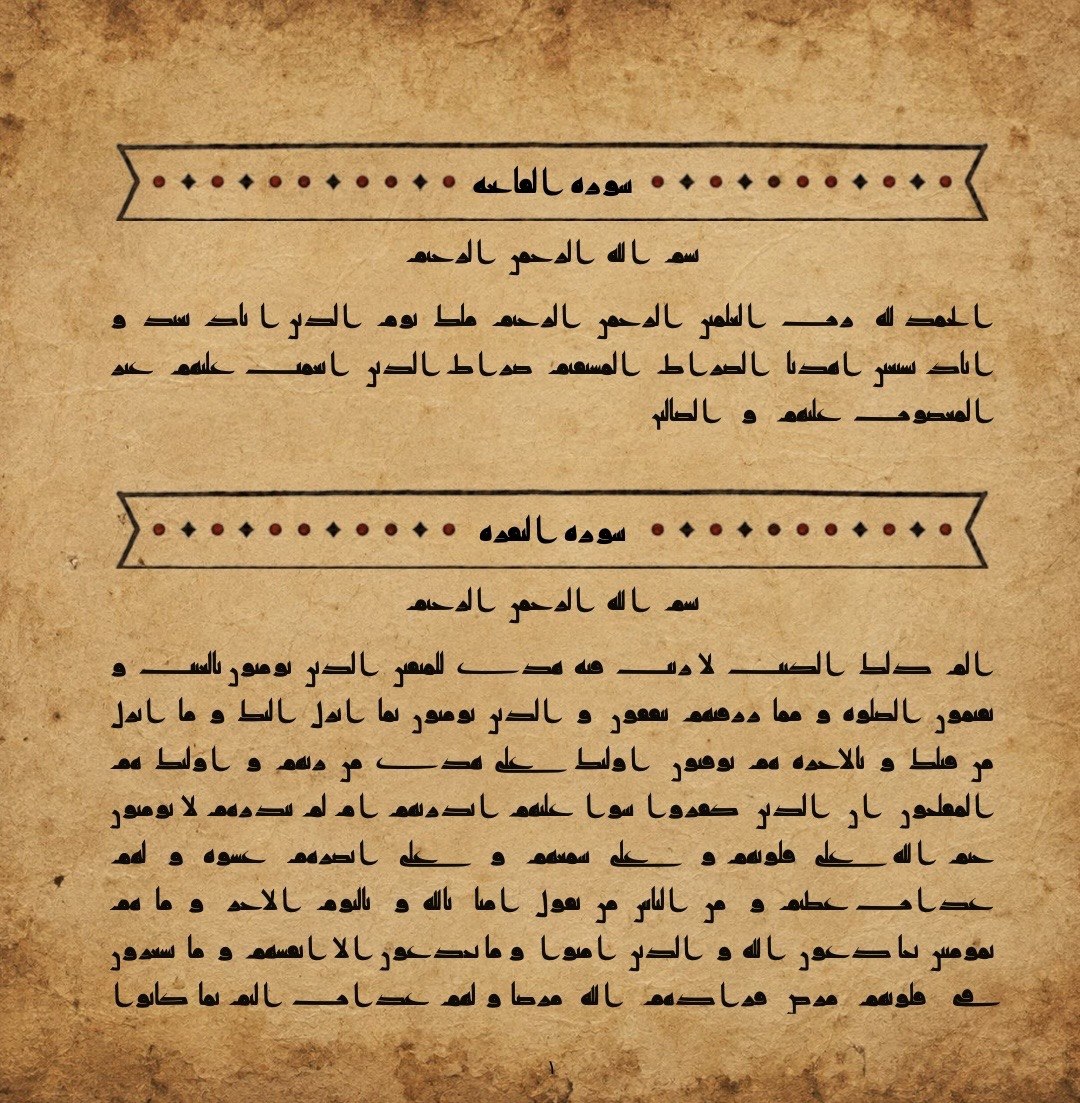 سوره الفاتحه
بسم الله الرحمن الرحيم
الحمد لله رب العلمين الرحمن الرحيم ملك يوم الدين اياك نعبد و
اياك نستعين اهدنا الصراط المستقيم صراط الذين انعمت عليهم غير
المغضوب عليهم و الضالين
سوره البقره
بسم الله الرحمن الرحيم
الم ذلك الكتب لا ريب فيه هدى للمتقين الذين يومنون بالغيب و
يقيمون الصلوه و مما رزقنهم ينفقون و الذين يومنون بما انزل اليك و ما انزل
من قبلك و بالاخره هم يوقنون اولئك على هدى من ربهم و اولئك هم
المفلحون ان الذين كفروا سوا عليهم انذرتهم ام لم تنذرهم لا يومنون
ختم الله على قلوبهم و على سمعهم و على ابصرهم غشوه و لهم
عذاب عظيم و من الناس من يقول امنا بالله و باليوم الاخر و ما هم
بمومنين يخادعون الله و الذين امنوا و ما يخدعون الا انفسهم و ما يشعرون
في قلوبهم مرض فزادهم الله مرضا و لهم عذاب اليم بما كانوا
١